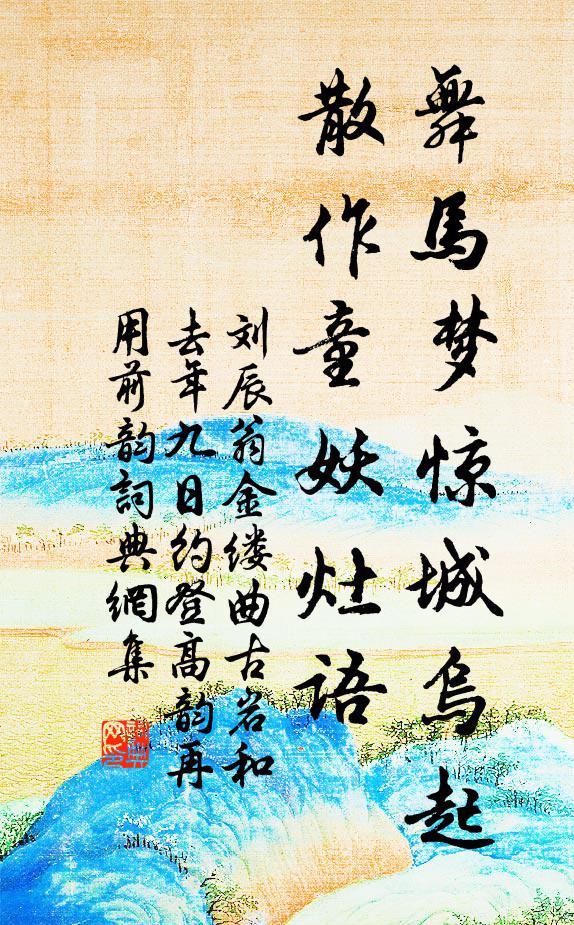 舞馬梦惊城乌起
散作童妖灶语
刘辰翁金缕曲古岩和
去年九日约登高韵再
用前韵詞典網集